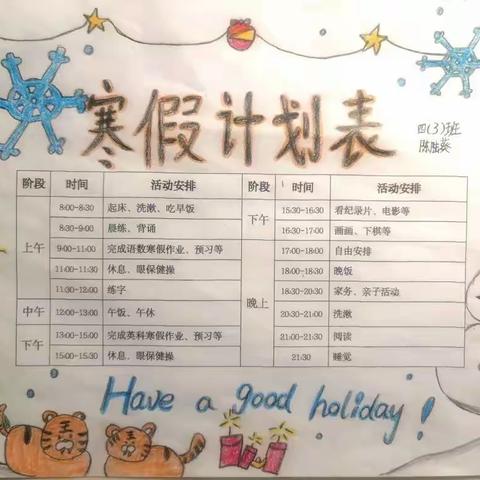 寒假计划表
四(3)班
阶段 时间 活动安排 阶段 时间 活动安排
上午 8:00-8:30 起床、洗漱、吃早饭 下午 15:30-16:30 看纪录片、电影等
8:30-9:00 晨练、背诵 16:30-17:00 画画、下棋等
9:00-11:00 完成语数寒假作业、预习等 晚上 17:00-18:00 自由安排
11:00-11:30 休息、眼保健操 18:00-18:30 晚饭
11:30-12:00 练字 18:30-20:30 家务、亲子活动
中午 12:00-13:00 午饭、午休 20:30-21:00 洗漱
下午 13:00-15:00 完成英科寒假作业、预习等 21:00-21:30 阅读
15:00-15:30 休息、眼保健操 21:30 睡觉
Have a good holiday!
王 王